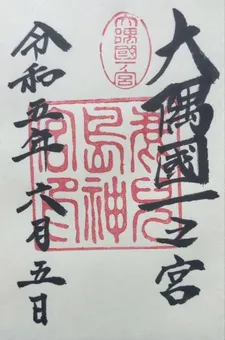 大隅國一之宮
大隅國一ノ宮
鹿兒島神宮印
令和五年六月五日